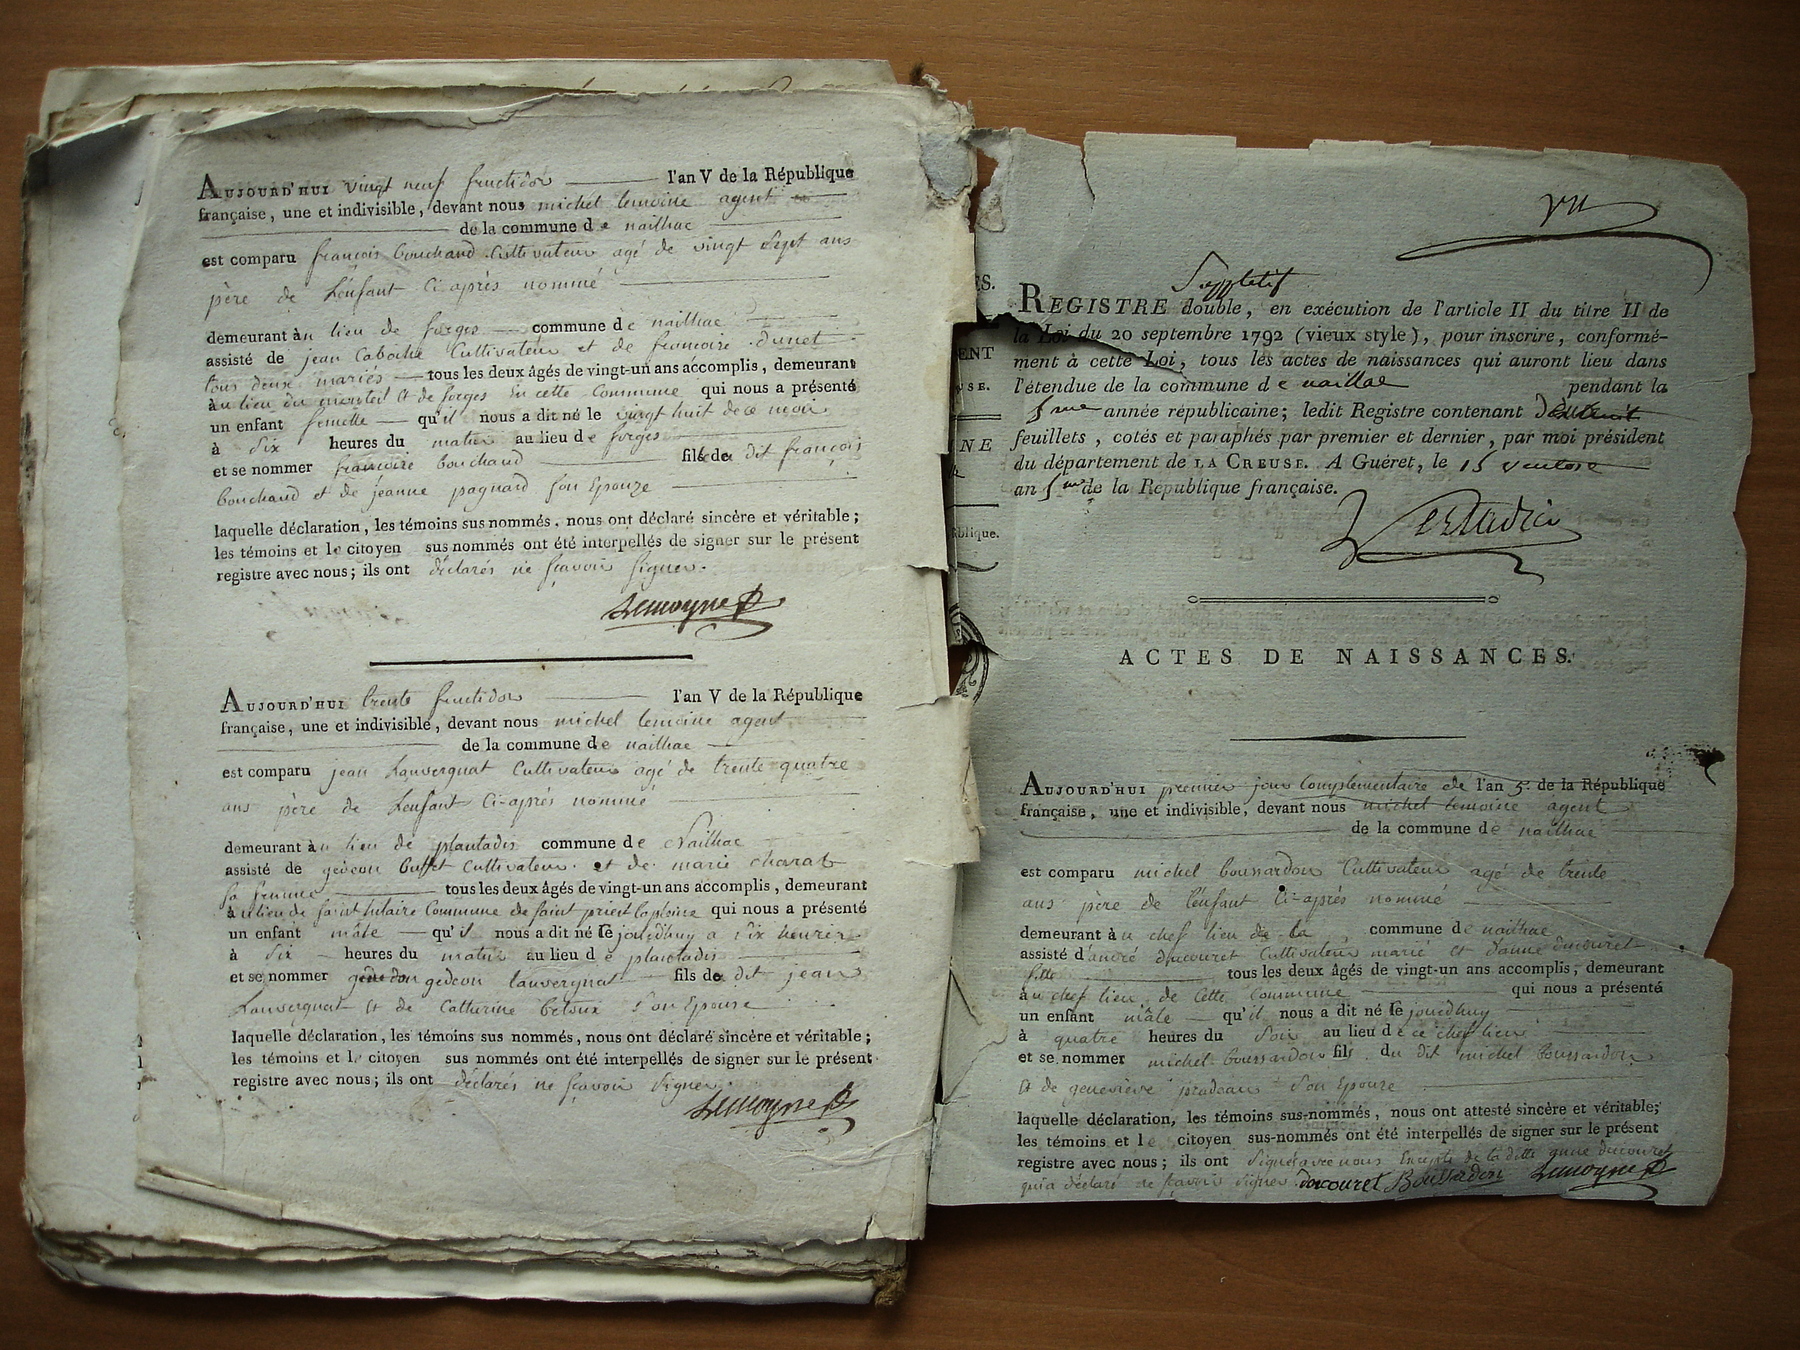 AUJOURD'HUI vingt neuf fructidor l'an V de la République
française, une et indivisible, devant nous michel lemoine agent
de la commune de naillac
est comparu françois bouchaud Cultivateur agé de vingt sept ans
père de L'enfant Ci-après nommé
demeurant au lieu de forges commune de naillac
assisté de jean Caboche Cultivateur et de francoise dunet
tous deux mariés tous les deux âgés de vingt-un ans accomplis, demeurant
au lieu du et de forges En cette Commune qui nous a présenté
un enfant femelle qu'il nous a dit né le vingt huit de ce mois
à Six heures du matin au lieu de forges
et se nommer francoise bouchaud fils de dit françois
bouchaud et de jeanne pagnard son Epouze
laquelle déclaration, les témoins sus nommés, nous ont déclaré sincère et véritable;
les témoins et le citoyen sus nommés ont été interpellés de signer sur le présent
registre avec nous; ils ont déclarés ne sçavoir signer.
Lemoyne
AUJOURD'HUI trente fructidor l'an V de la République
française, une et indivisible, devant nous michel lemoine agent
de la commune de naillac
est comparu jean Lauvergnat Cultivateur agé de trente quatre
ans père de Lenfant Ci-après nommé
demeurant au lieu de plantadis commune de Naillac
assisté de gedeon buffet Cultivateur et de marie charat
sa femme tous les deux âgés de vingt-un ans accomplis, demeurant
au lieu de saint hilaire Commune de saint priest laplaine qui nous a présenté
un enfant mâle qu'il nous a dit né le jourdhuy a six heures
à Six heures du matin au lieu de plantadis
et se nommer gedeon lauvergnat fils de dit jean
Lauvergnat et de Catherine betoux son Epouse
laquelle déclaration, les témoins sus nommés, nous ont déclaré sincère et véritable;
les témoins et le citoyen sus nommés ont été interpellés de signer sur le présent
registre avec nous; ils ont déclarés ne sçavoir Signer.
Lemoyne
ES.
ENT
USE.
NE
ublique.
vu
Suppletif
REGISTRE double, en exécution de l'article II du titre II de
la Loi du 20 septembre 1792 (vieux style), pour inscrire, conformé-
ment à cette Loi, tous les actes de naissances qui auront lieu dans
l'étendue de la commune de naillac pendant la
5me année républicaine; ledit Registre contenant
feuillets, cotés et paraphés par premier et dernier, par moi président
du département de LA CREUSE. A Guéret, le 15 ventose
an 5me de la République française.
ACTES DE NAISSANCES.
AUJOURD'HUI premier jour Complementaire de l'an 5. de la République
française, une et indivisible, devant nous michel lemoine agent
de la commune de naillac
est comparu michel boussardon Cultivateur agé de trente
ans père de l'enfant Ci-après nommé
demeurant au chef lieu de la commune de naillac
assisté d'andré ducouret Cultivateur marié et d'anne ducouret
fille tous les deux âgés de vingt-un ans accomplis, demeurant
au chef lieu de Cette Commune qui nous a présenté
un enfant mâle qu'il nous a dit né le jourdhuy
à quatre heures du Soir au lieu de ce chef lieu
et se nommer michel boussardon fils du dit michel boussardon
et de geneviève pradeau Son Epouze
laquelle déclaration, les témoins sus-nommés, nous ont attesté sincère et véritable;
les témoins et le citoyen sus-nommés ont été interpellés de signer sur le présent
registre avec nous; ils ont Signés avec nous Excepté de la ditte anne ducouret
qui a déclaré ne sçavoir Signer ducouret Boussardon Lemoyne